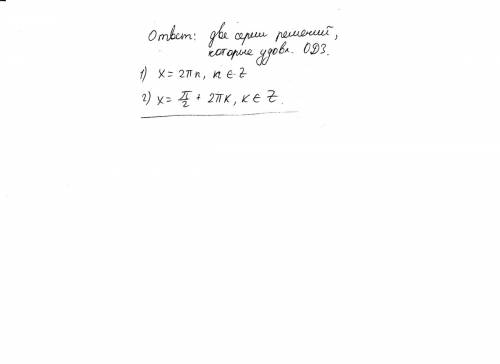 Ответ: две серии решений,
которые удовл. ОДЗ.
1) x = 2πn, n ∈ Z
2) x = π/2 + 2πk, k ∈ Z.